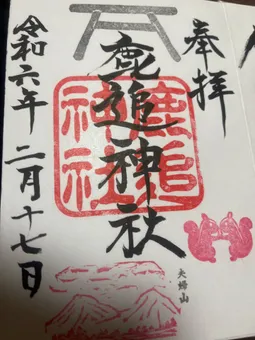 奉拝
鹿追神社
鹿追
神社
夫婦山
令和六年二月十七日